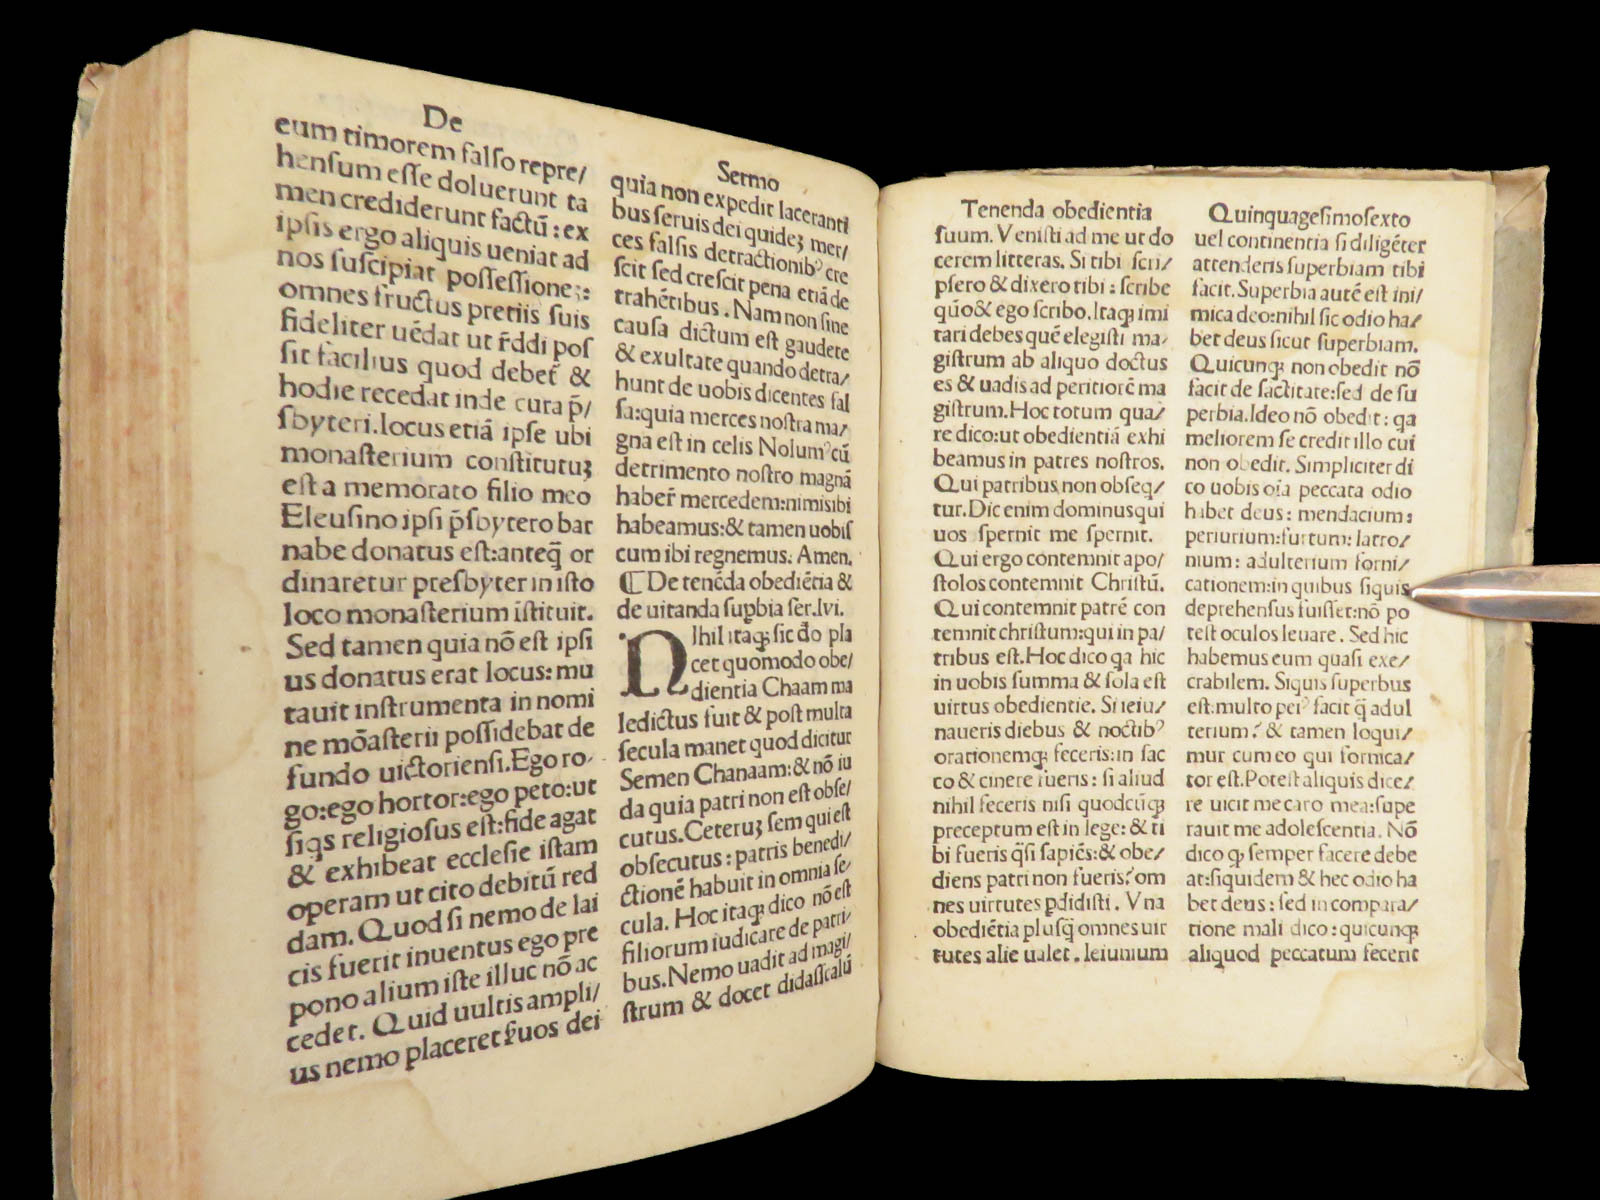 De
eum timorem falſo repre/
henſum eſſe doluerunt ta
men crediderunt factū : ex
ipſis ergo aliquis ueniat ad
nos ſuſcipiat poſſeſſiones:
omnes fructus pretiis ſuis
fideliter uēdat ut r̄ddi poſ
ſit facilius quod debet̄ &
hodie recedat inde cura p̄/
ſbyteri.locus etiā ipſe ubi
monaſterium conſtitutuꝫ
eſt a memorato filio meo
Eleuſino ipſi p̄ſbytero bar
nabe donatus eſt:anteq̄ or
dinaretur preſbyter in iſto
loco monaſterium īſtituit.
Sed tamen quia nō eſt ipſi
us donatus erat locus: mu
tauit inſtrumenta in nomi
ne mōaſterii poſſidebat de
fundo uictorienſi.Ego ro-
go:ego hortor:ego peto:ut
ſiqs religioſus eſt:fide agat
& exhibeat eccleſie iſtam
operam ut cito debitū red
dam. Quod ſi nemo de lai
cis fuerit inuentus ego pre
pono alium iſte illuc nō ac
cedet. Quid uultis ampli/
us nemo placeret ſuos dei
Sermo
quia non expedit laceranti
bus ſeruis dei quideꝫ mer/
ces falſis detractionibꝰ cre
ſcit ſed creſcit pena etiā de
trahētibus . Nam non ſine
cauſa dictum eſt gaudete
& exultate quando detra/
hunt de uobis dicentes fal
ſa:quia merces noſtra ma/
gna eſt in celis Nolumꝰ cū
detrimento noſtro magnā
haber̄ mercedem:nimis ibi
habeamus:& tamen uobiſ
cum ibi regnemus. Amen.
¶ De tenēda obediētia &
de uitanda ſupbia ſer.lvi.
NIhil itaqꝫ ſic dō pla
cet quomodo obe/
dientia Chaam ma
ledictus fuit & poſt multa
ſecula manet quod dicitur
Semen Chanaam:& nō iu
da quia patri non eſt obſe/
cutus.Ceteruꝫ ſem qui eſt
obſecutus : patris benedi/
ctionē habuit in omnia ſe-
cula. Hoc itaqꝫ dico nō eſt
filiorum iudicare de patri-
bus.Nemo uadit ad magi/
ſtrum & docet didaſſcalū
Tenenda obedientia
ſuum. Veniſti ad me ut do
cerem litteras. Si tibi ſcri/
pſero & dixero tibi : ſcribe
quō & ego ſcribo.Itaqꝫ imi
tari debes quē elegiſti ma-
giſtrum ab aliquo doctus
es & uadis ad peritiorē ma
giſtrum.Hoc totum qua/
re dico:ut obedientiā exhi
beamus in patres noſtros.
Qui patribus non obſeq/
tur.Dic enim dominus qui
uos ſpernit me ſpernit.
Qui ergo contemnit apo/
ſtolos contemnit Chriſtū.
Qui contemnit patrē con
temnit chriſtum:qui in pa/
tribus eſt.Hoc dico qa hic
in uobis ſumma & ſola eſt
uirtus obedientie. Si ieiu/
naueris diebus & noctibꝰ
orationemqꝫ feceris:in ſac
co & cinere fueris : ſi aliud
nihil feceris niſi quodcūqꝫ
preceptum eſt in lege: & ti
bi fueris q̄ſi ſapiēs:& obe/
diens patri non fueris:om
nes uirtutes pdidiſti . Vna
obediētia pluſq̄ omnes uir
tutes alie ualet . Ieiunium
Quinquageſimoſexto
uel continentia ſi diligēter
attenderis ſuperbiam tibi
facit.Superbia autē eſt ini/
mica deo:nihil ſic odio ha/
bet deus ſicut ſuperbiam.
Quicunqꝫ non obedit nō
facit de ſāctitate:ſed de ſu
perbia.Ideo nō obedit : qa
meliorem ſe credit illo cui
non obedit. Simpliciter di
co uobis oīa peccata odio
habet deus : mendacium:
periurium:furtum: latro/
nium: adulterium forni/
cationem:in quibus ſiquis
deprehenſus fuiſſet:nō po
teſt oculos leuare. Sed hic
habemus eum quaſi exe/
crabilem. Siquis ſuperbus
eſt:multo peiꝰ facit q̄ adul
terium: & tamen loqui/
mur cum eo qui fornica/
tor eſt.Poteſt aliquis dice/
re uicit me caro mea:ſupe
rauit me adoleſcentia. Nō
dico qꝫ ſemper facere debe
at:ſiquidem & hec odio ha
bet deus : ſed in compara/
tione mali dico : quicunqꝫ
aliquod peccatum fecerit